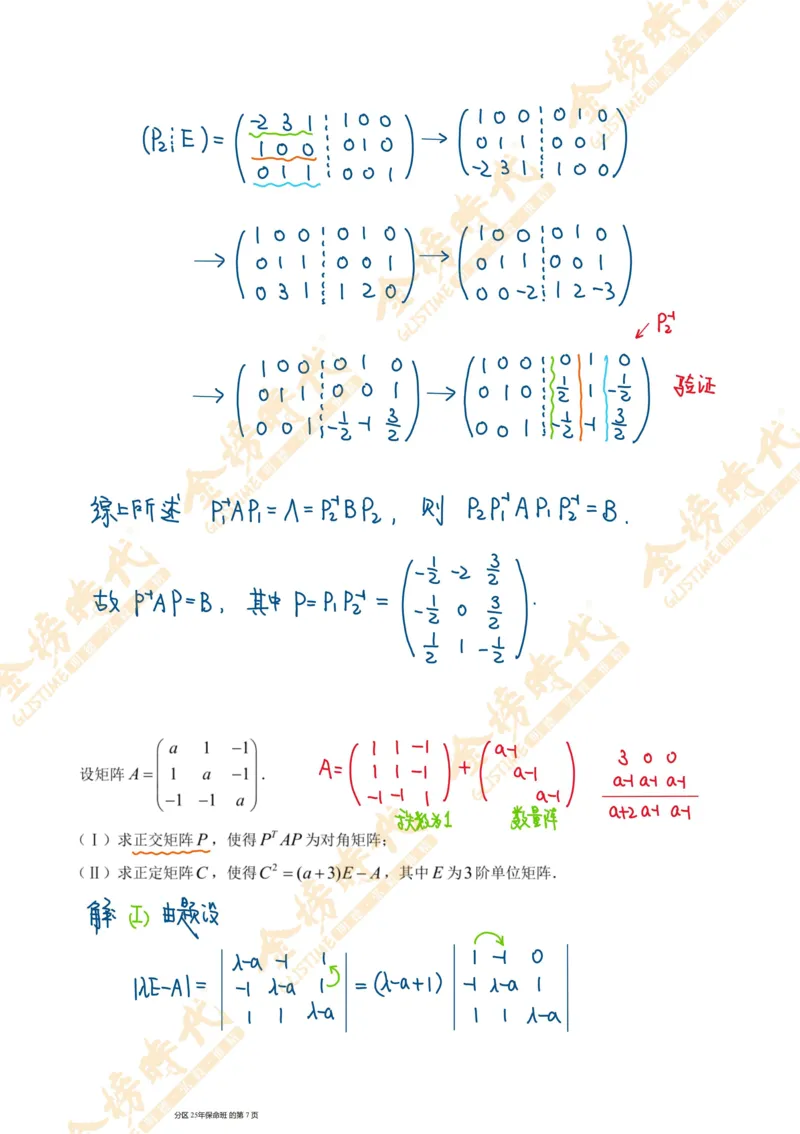 (P₂⋮E) = ( -2 3 1 ⋮ 1 0 0 ; 1 0 0 ⋮ 0 1 0 ; 0 1 1 ⋮ 0 0 1 ) → ( 1 0 0 ⋮ 0 1 0 ; 0 1 1 ⋮ 0 0 1 ; -2 3 1 ⋮ 1 0 0 )
→ ( 1 0 0 ⋮ 0 1 0 ; 0 1 1 ⋮ 0 0 1 ; 0 3 1 ⋮ 1 2 0 ) → ( 1 0 0 ⋮ 0 1 0 ; 0 1 1 ⋮ 0 0 1 ; 0 0 -2 ⋮ 1 2 -3 )
P₂⁻¹
→ ( 1 0 0 ⋮ 0 1 0 ; 0 1 1 ⋮ 0 0 1 ; 0 0 1 ⋮ -1/2 -1 3/2 ) → ( 1 0 0 ⋮ 0 1 0 ; 0 1 0 ⋮ 1/2 1 -1/2 ; 0 0 1 ⋮ -1/2 -1 3/2 ) 验证
综上所述 P₁⁻¹AP₁=Λ=P₂⁻¹BP₂, 则 P₂P₁⁻¹AP₁P₂⁻¹=B.
故 P⁻¹AP=B, 其中 P=P₁P₂⁻¹ = ( -1/2 -2 3/2 ; -1/2 0 3/2 ; 1/2 1 -1/2 ).
设矩阵 A = ( a 1 -1 ; 1 a -1 ; -1 -1 a ).
A= ( 1 1 -1 ; 1 1 -1 ; -1 -1 1 ) + ( a-1 ; a-1 ; a-1 )
3 0 0
a-1 a-1 a-1
a+2 a-1 a-1
秩为1 数量阵
(Ⅰ)求正交矩阵P,使得PᵀAP为对角矩阵;
(Ⅱ)求正定矩阵C,使得C²=(a+3)E−A,其中E为3阶单位矩阵.
解 (Ⅰ) 由题设
|λE-A| = | λ-a -1 1 ; -1 λ-a 1 ; 1 1 λ-a | = (λ-a+1) | 1 -1 0 ; -1 λ-a 1 ; 1 1 λ-a |
分区 25年保命班 的第 7 页
金榜時代
GLISTIME